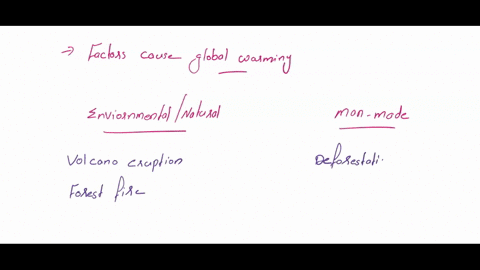 → Factors cause global warming
Enviornmental/Natural
man-made
Volcano eruption
Deforestati
Forest fire